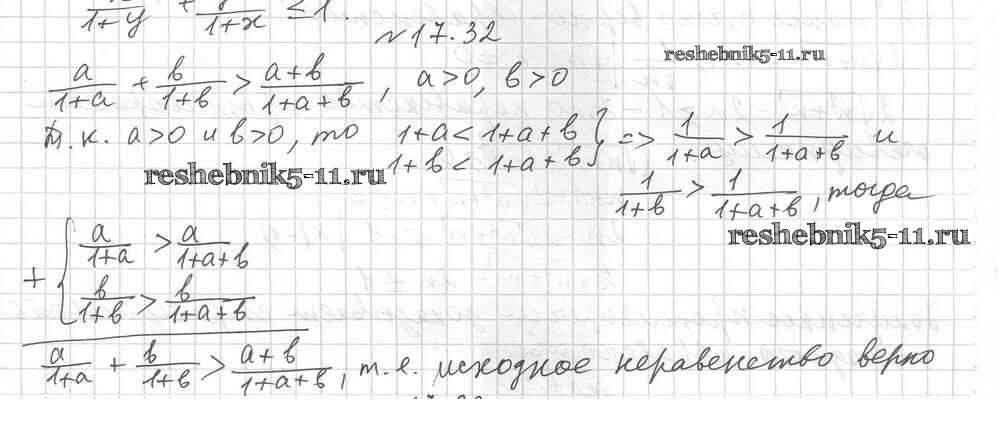 1+y + 1+x ≤ 1.
№17.32
reshebnik5-11.ru
a/(1+a) + b/(1+b) > (a+b)/(1+a+b), a>0, b>0
Т.к. a>0 и b>0, то 1+a < 1+a+b } => 1/(1+a) > 1/(1+a+b) и
1+b < 1+a+b
reshebnik5-11.ru
1/(1+b) > 1/(1+a+b), тогда
reshebnik5-11.ru
+ { a/(1+a) > a/(1+a+b)
b/(1+b) > b/(1+a+b)
a/(1+a) + b/(1+b) > (a+b)/(1+a+b), т.е. исходное неравенство верно